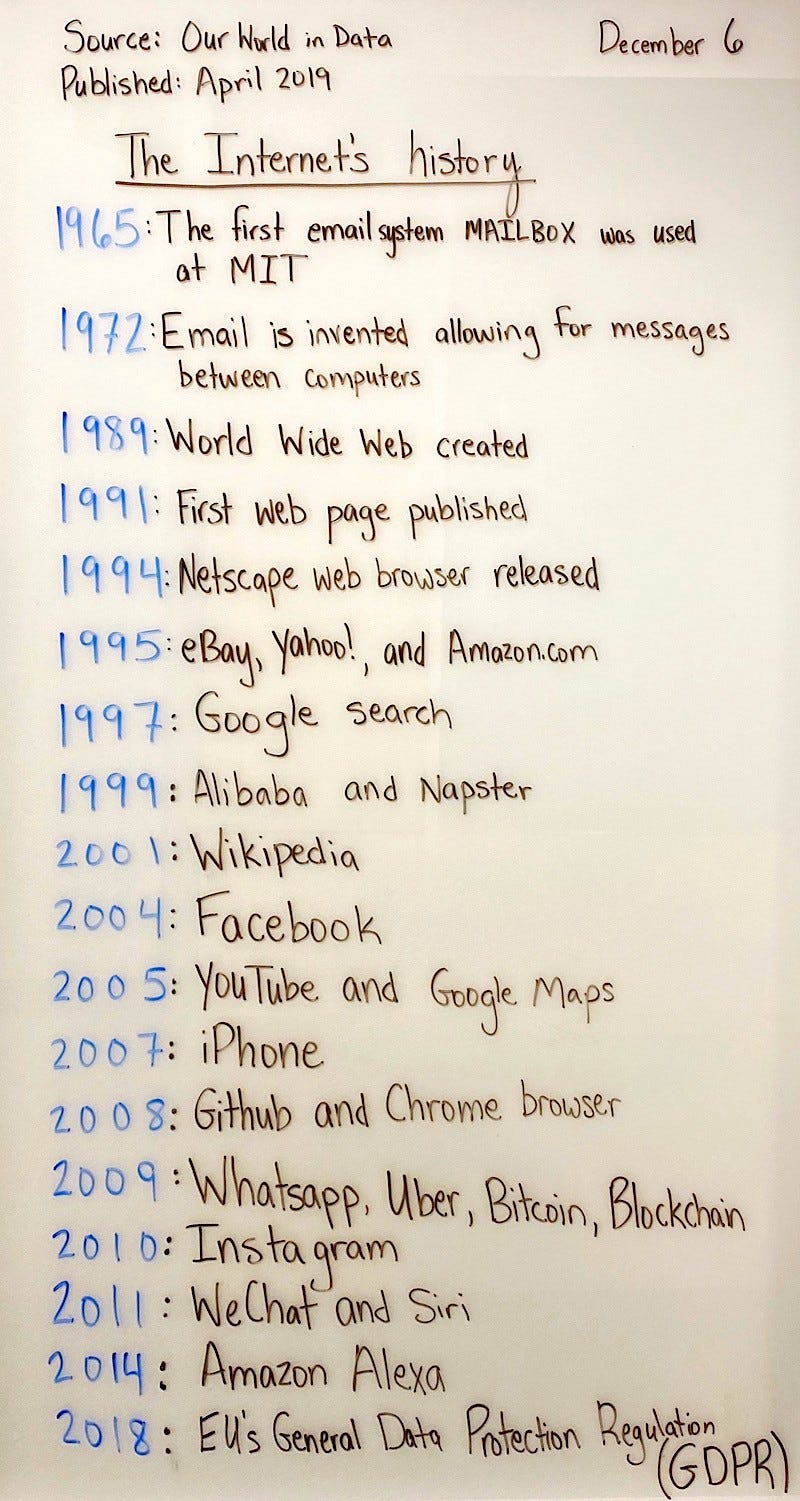 Source: Our World in Data
December 6
Published: April 2019
The Internet's history
1965: The first email system MAILBOX was used
at MIT
1972: Email is invented allowing for messages
between computers
1989: World Wide Web created
1991: First web page published
1994: Netscape web browser released
1995: eBay, Yahoo!, and Amazon.com
1997: Google search
1999: Alibaba and Napster
2001: Wikipedia
2004: Facebook
2005: YouTube and Google Maps
2007: iPhone
2008: Github and Chrome browser
2009: Whatsapp, Uber, Bitcoin, Blockchain
2010: Instagram
2011: WeChat and Siri
2014: Amazon Alexa
2018: EU's General Data Protection Regulation
(GDPR)